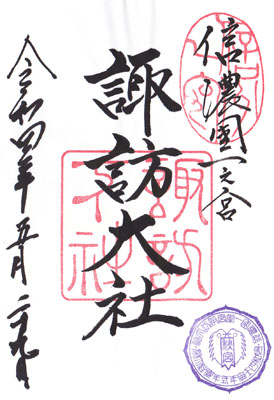 信濃國一之宮
諏訪大社
令和四年五月二十九日
諏訪大社